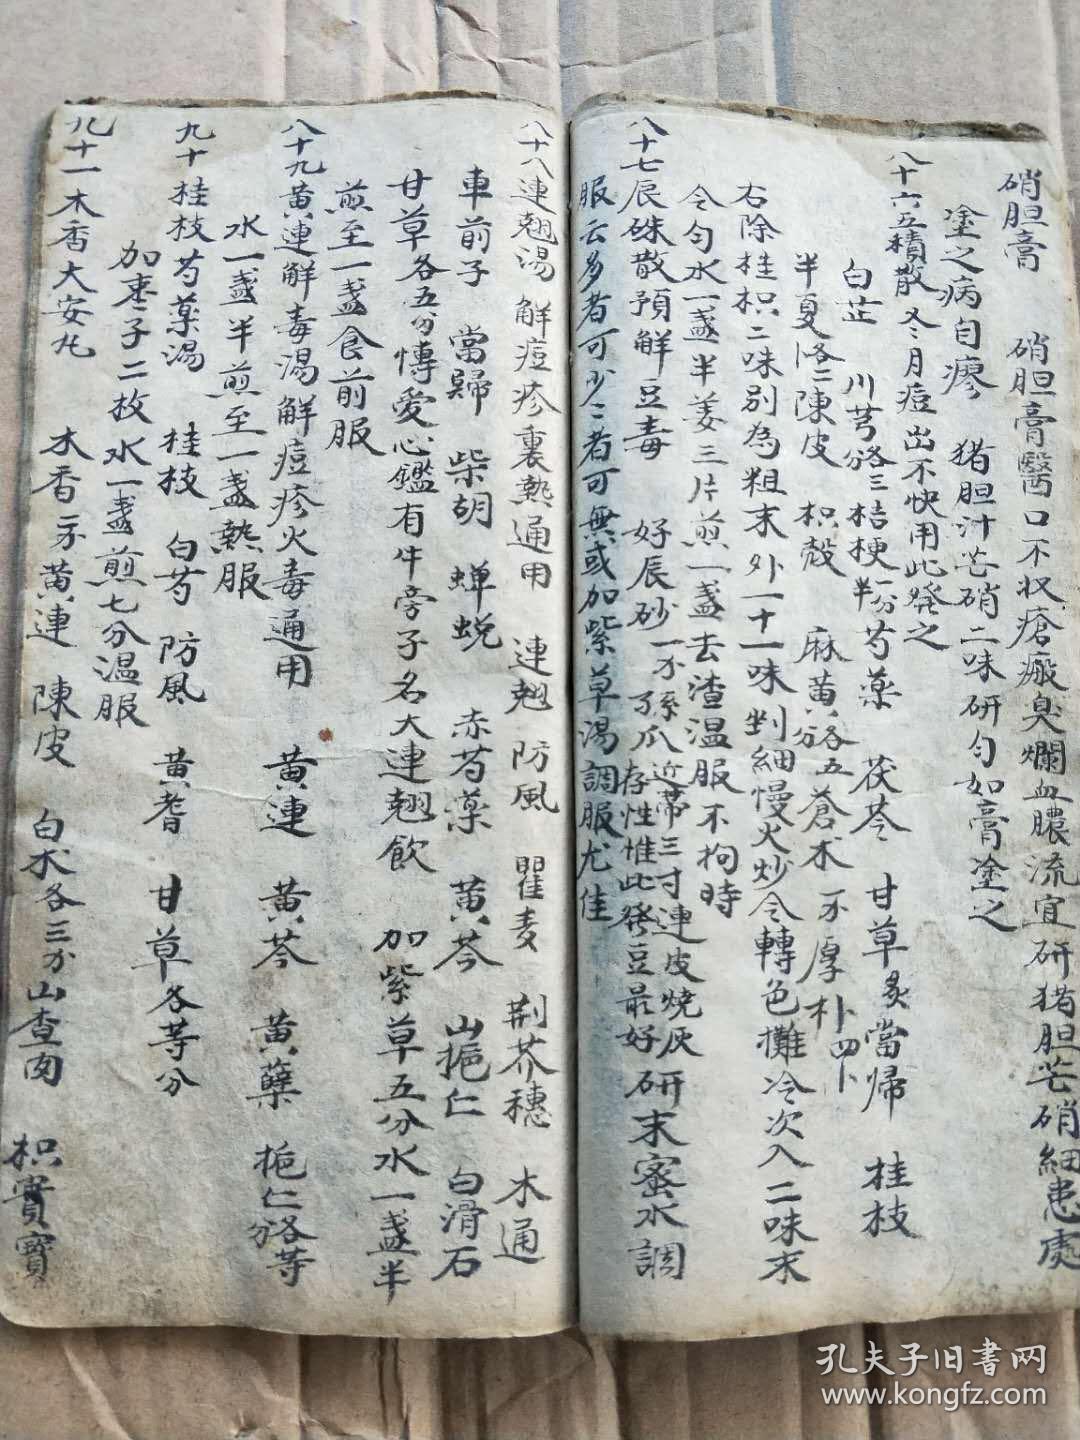 硝胆膏 硝胆膏醫口不收瘡癥臭爛血膿流宜研猪胆芒硝細患處
塗之病自瘳 猪胆汁芒硝二味研匀如膏塗之
八十六五積散冬月痘出不快用此發之
白芷 川芎各三分桔梗一分半芍藥 茯苓 甘草炙當帰 桂枝
半夏各二陳皮 枳殼 麻黄各五分蒼术 厚朴四卜
右除桂枳二味別為粗末外一十一味剉細慢火炒令轉色攤冷次入二味末
令匀水一盞半姜三片煎一盞去渣温服不拘時
八十七辰硃散預解豆毒 好辰砂一分 絲瓜近蒂三寸連皮燒灰存性惟此發豆最好研末蜜水調
服云多者可少少者可無或加紫草湯調服尤佳
八十八連翹湯 解痘疹裏熱通用 連翹 防風 瞿麦 荆芥穗 木通
車前子 當歸 柴胡 蝉蜕 赤芍藥 黄芩 山梔仁 白滑石
甘草各五分慱愛心鑑有牛旁子名大連翹飲 加紫草五分水一盞半
煎至一盞食前服
八十九黄連解毒湯解痘疹火毒通用 黄連 黄芩 黄蘗 梔仁各等分
水一盞半煎至一盞熱服
九十桂枝芍藥湯 桂枝 白芍 防風 黄耆 甘草各等分
加棗子二枚水一盞煎七分温服
九十一木香大安丸 木香二分黄連 陳皮 白术各三分山查肉 枳實實
孔夫子旧書网
www.kongfz.com